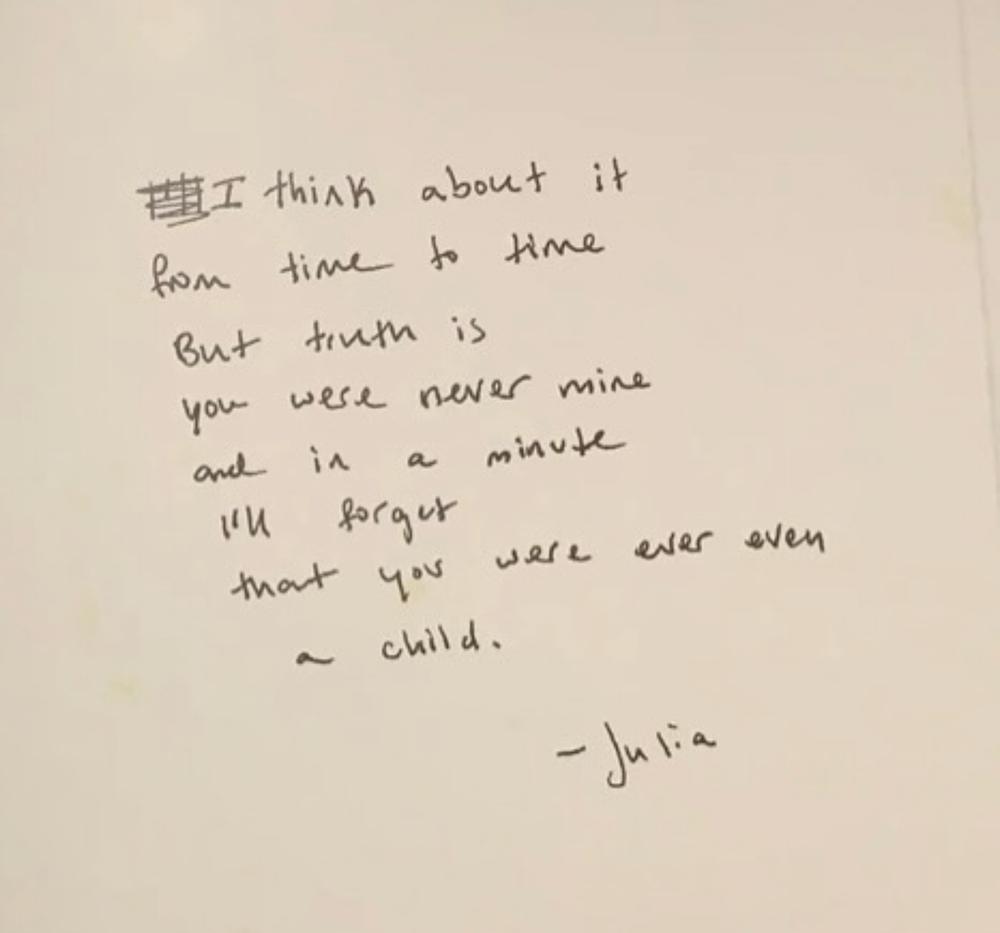 I think about it
from time to time
But truth is
you were never mine
and in a minute
I'll forget
that you were ever even
a child.
- Julia